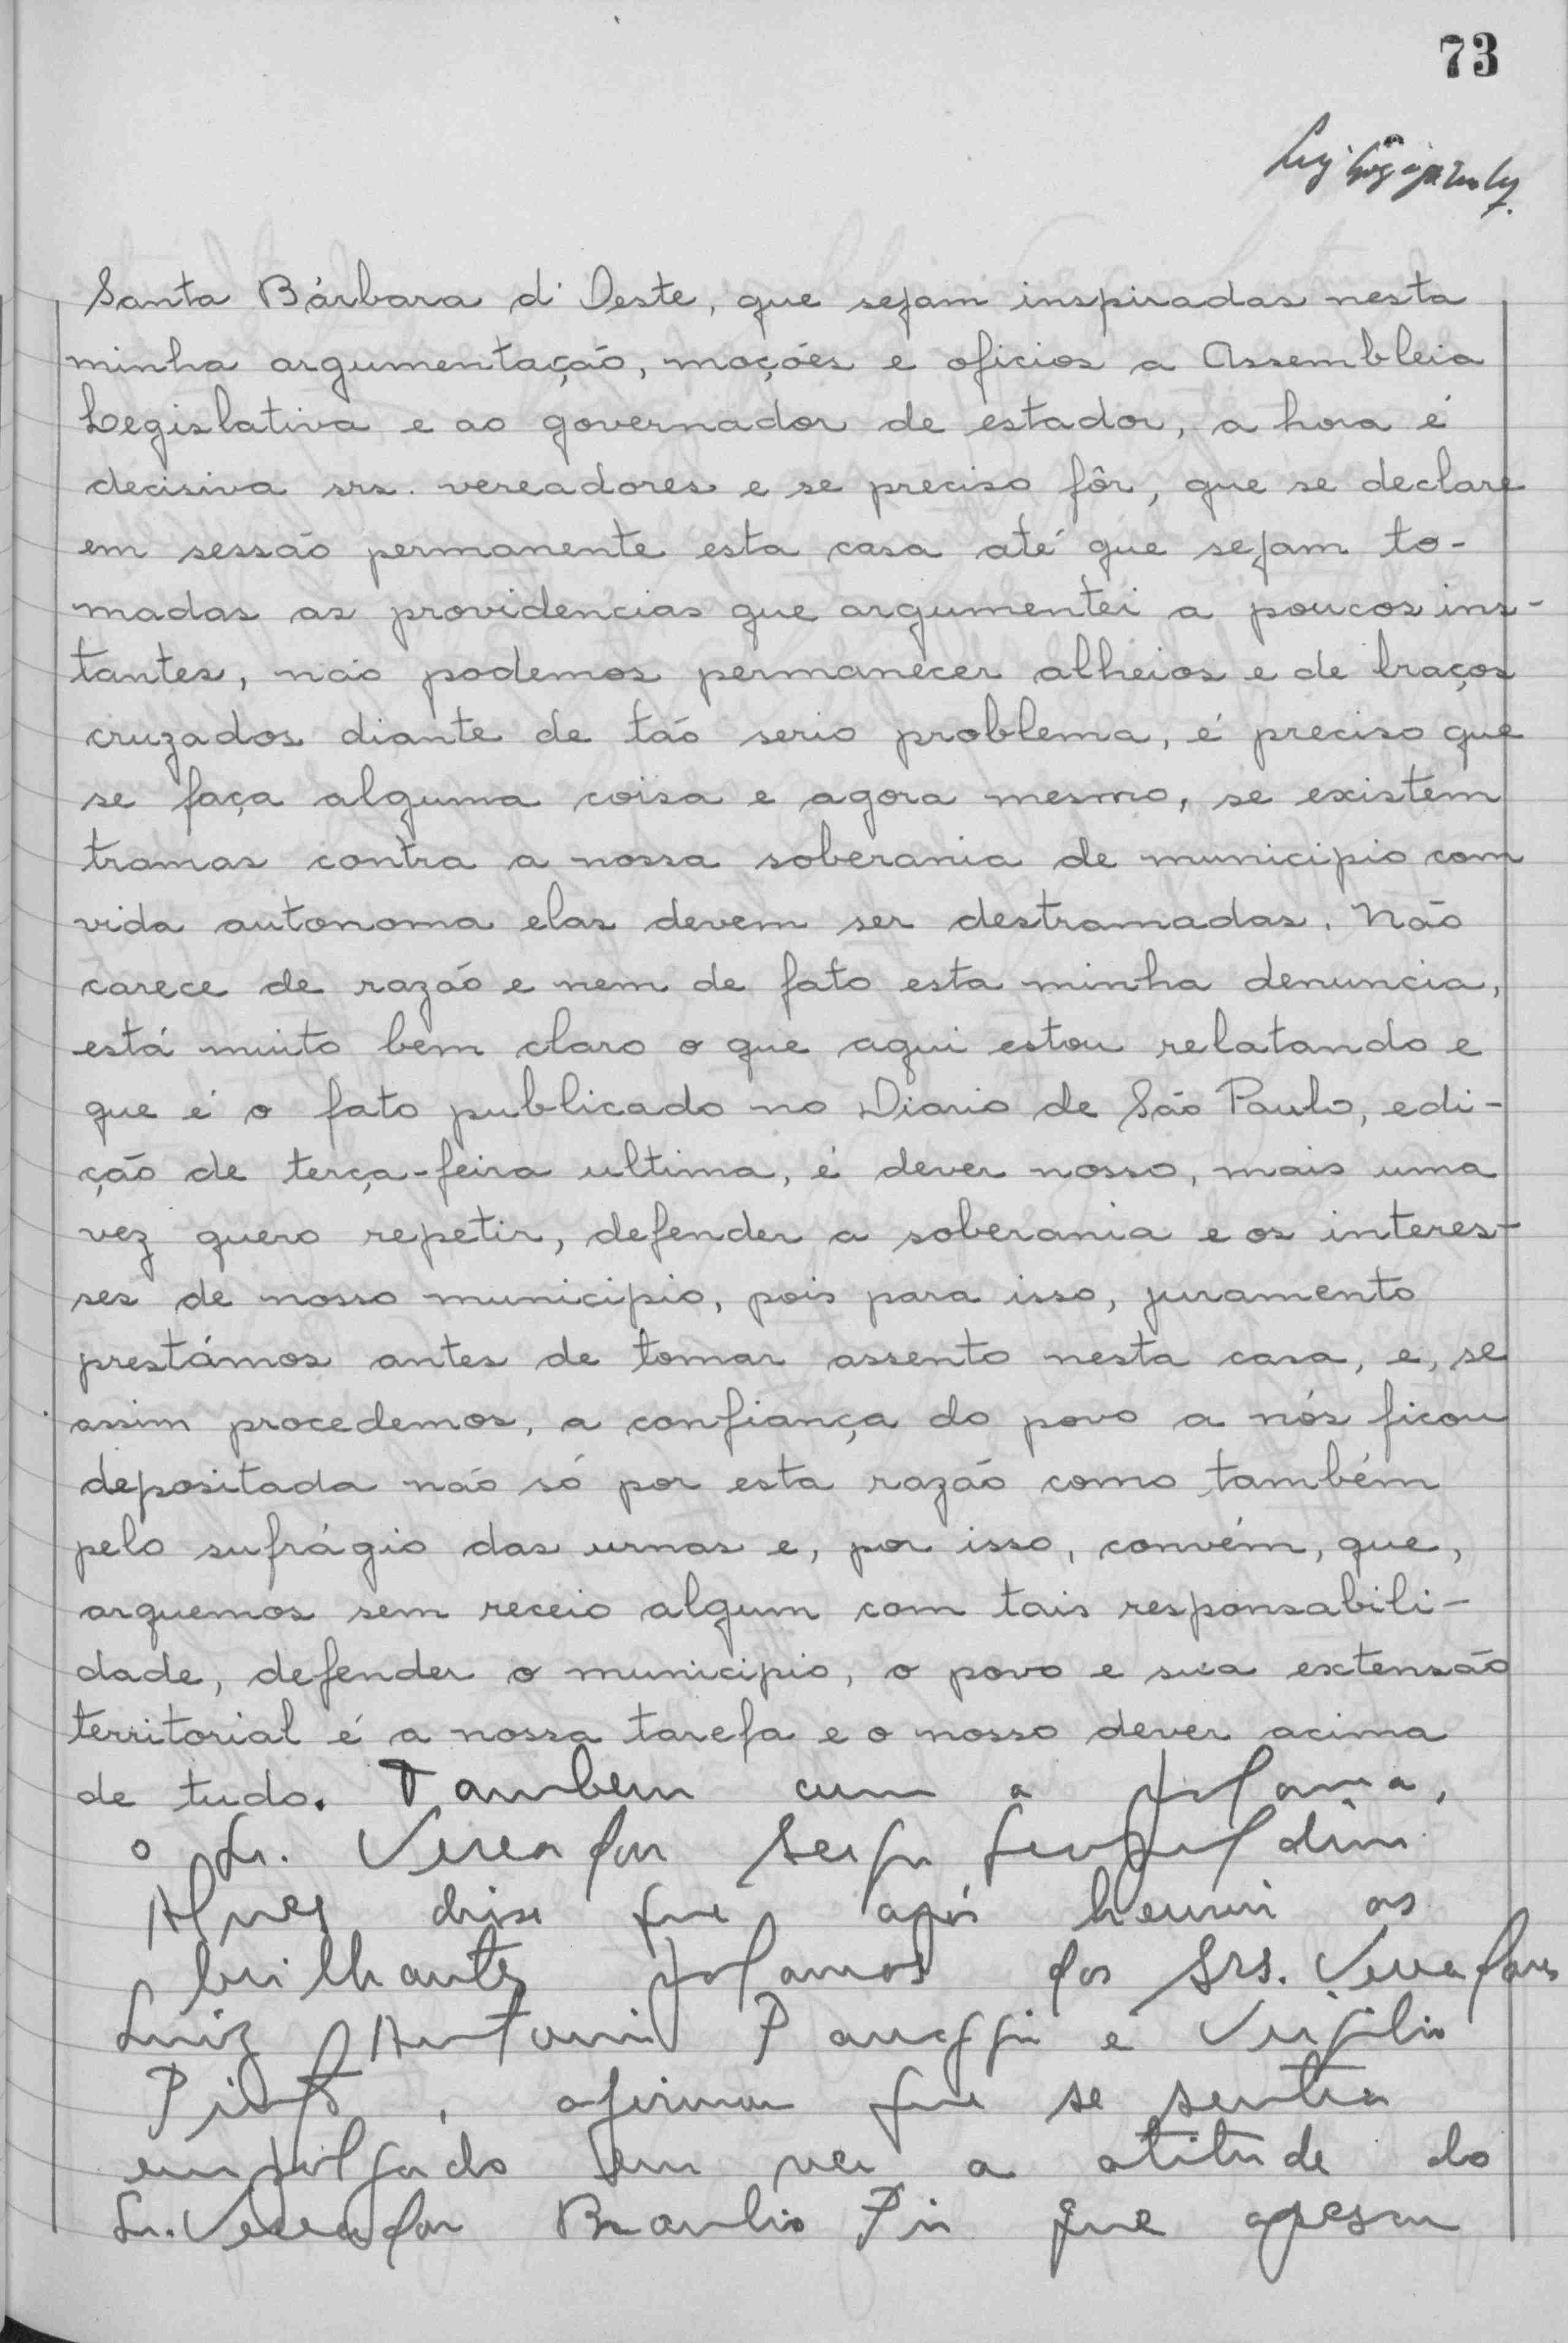 73
Santa Bárbara d'Oeste, que sejam inspiradas nesta
minha argumentação, moções e oficios a Assembleia
Legislativa e ao governador de estador, a hora é
decisiva srs. vereadores e se preciso fôr, que se declare
em sessão permanente esta casa até que sejam to-
madas as providencias que argumentei a poucos ins-
tantes, não podemos permanecer alheios e de braços
cruzados diante de tão serio problema, é preciso que
se faça alguma coisa e agora mesmo, se existem
tramas contra a nossa soberania de municipio com
vida autonoma elas devem ser destramadas. Não
carece de razão e nem de fato esta minha denuncia,
está muito bem claro o que aqui estou relatando e
que é o fato publicado no Diario de São Paulo, edi-
ção de terça-feira ultima, é dever nosso, mais uma
vez quero repetir, defender a soberania e os interes-
ses de nosso municipio, pois para isso, juramento
prestámos antes de tomar assento nesta casa, e, se
assim procedemos, a confiança do povo a nós ficou
depositada não só por esta razão como também
pelo sufrágio das urnas e, por isso, convém, que,
arquemos sem receio algum com tais responsabili-
dade, defender o municipio, o povo e sua extensão
territorial é a nossa tarefa e o nosso dever acima
de tudo. Tambem com a palavra,
o Sr. Vereador Sergio Leopoldino
Alves disse que após as
brilhantes dos Srs. Vereadores
Luiz Antonio e Virgilio
afirmou que se sentia
empolgado em ver a atitude do
Sr. Vereador Braulio Pio que apesar